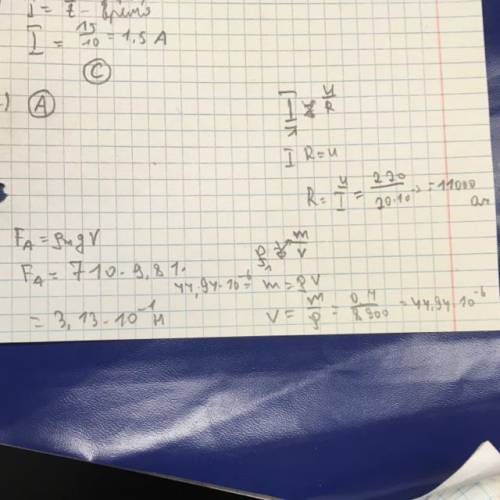 I = t - время
I = 15/10 = 1,5 A
C
A
I = u/R
I R = u
R = u/I = 220/20·10⁻³ = 11000
ом
F_A = ρж g V
F_A = 710 · 9,81 ·
44,94·10⁻⁶ =
= 3,13 · 10⁻¹ Н
ρ = m/V
m = ρ V
V = m/ρ = 0,4/8900 = 44,94·10⁻⁶